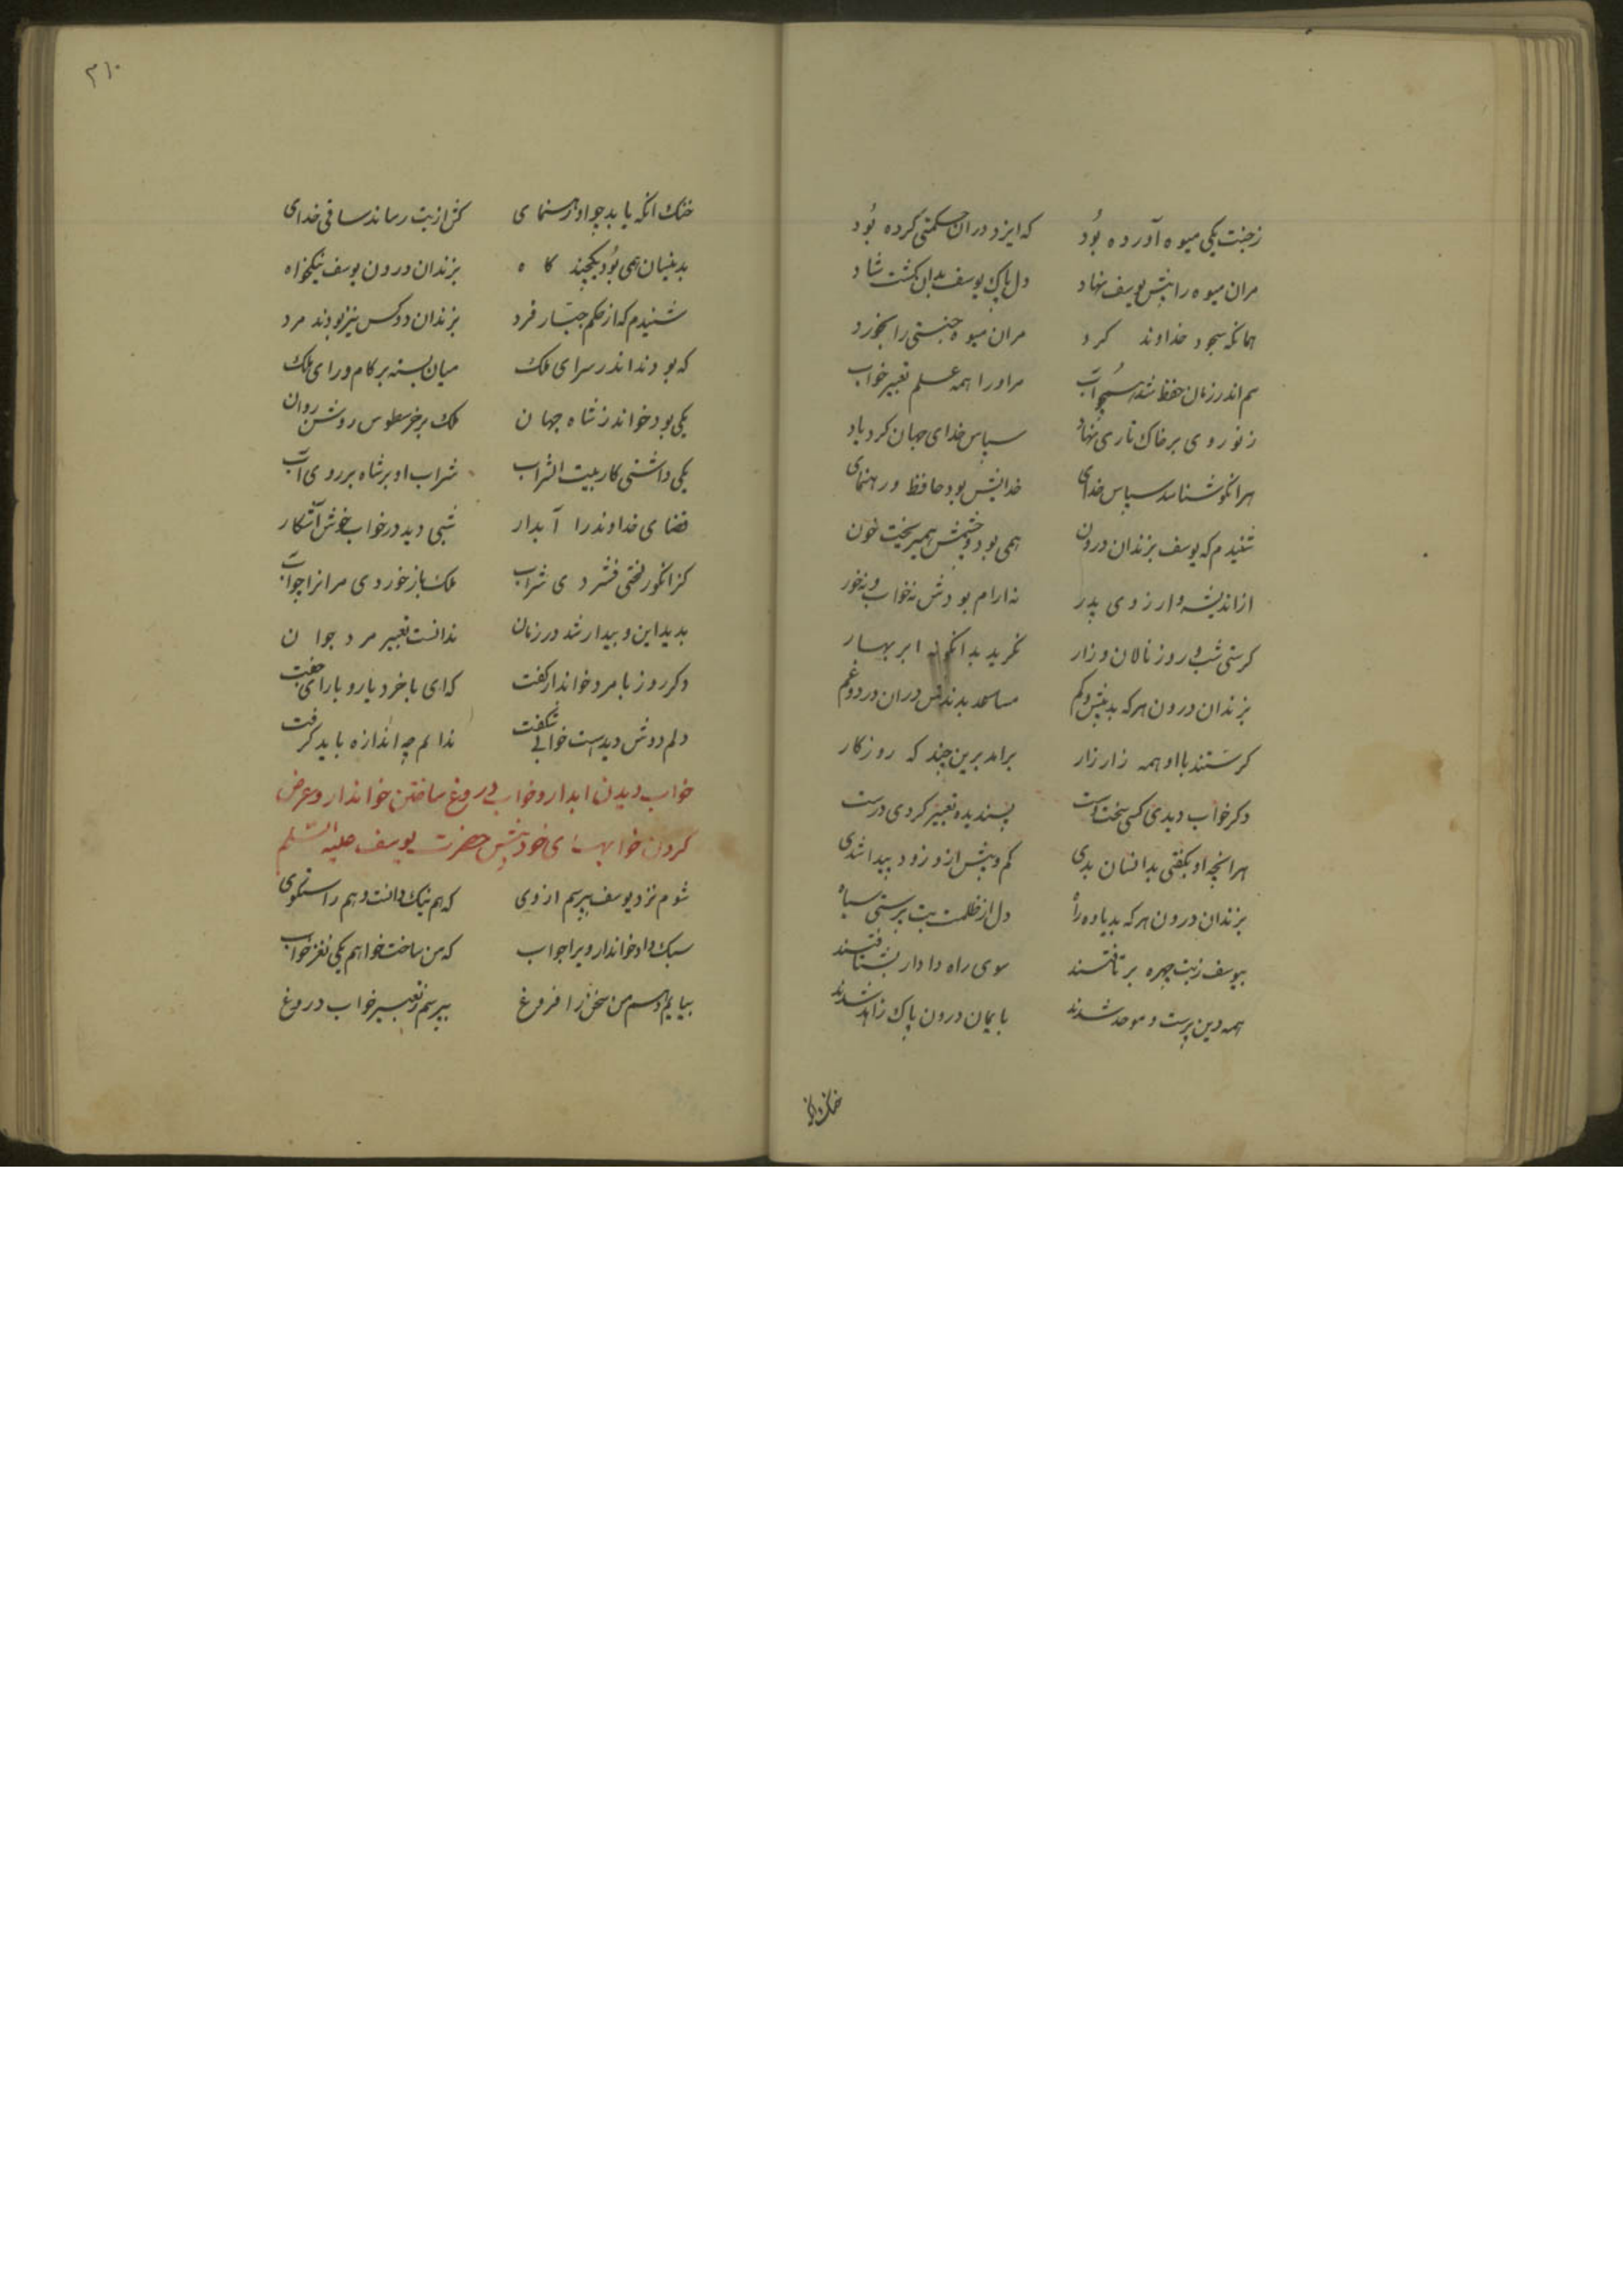 زجنت یکی میوه آورده بُود که ایزد دران حکمتی کرده بُود
مران میوه را پیش یوسف نهاد دل پاک یوسف بدان کشت شاد
همانکه سجود خداوند کرد مران میوه جنتی را بخورد
هم اندر زمان حفظ شد مراورا همه علم تعبیر خواب
ز نو روی بر خاک تاری نهاد سپاس خدای جهان کرد یاد
هرانکو شناسد سپاس خدای خدایش بود حافظ و رهنمای
شنیدم که یوسف بزندان درون همی بود و چشمش همیریخت خون
از اندیشه و ارزوی پدر نه ارام بودش نه خواب و نه خور
کرستی شب و روز نالان و زار نکرید بدانکونه ابر بهار
بزندان درون هرکه بد بیش و کم بدندش دران درد و غم
کرستند با او همه زار زار برامد برین چند که روزکار
دکر خواب دیدی کسی سخت پسندیده تعبیر کردی درست
هرانچه او بکفتی بدانسان بدی کم و بیش ازو زود پیدا شدی
بزندان درون هرکه بد یاوه راه دل از ظلمت بت پرستی سیاه
بیوسف زبت چهره برتافتند سوی راه دادار بشتافتند
همه دین پرست و موحد شدند بایمان درون پاک زاهد شدند
خنک انکه
۳۱۰
خنک انکه یابد چو او رهنمای کش از بت رساند سافی خدای
بدینسان همی بُود یکچند کاه بزندان درون یوسف نیکخواه
شنیدم که از حکم جبّار فرد بزندان دو کس نیز بودند مرد
که بودند اندر سرای ملک میان بسته بر کام و رای ملک
یکی بود خواندر ز شاه جهان ملک روشن روان
یکی داشتی کار بیت الشراب شراب او بر شاه بر روی آب
قضای خداوند را آبدار شبی دید در خواب خوش آشکار
کز انکور لختی فشردی شراب ملک باز خوردی مرانرا جواب
بدید این و بیدار شد در زمان ندانست تعبیر مرد جوان
دکر روز با مرد خواندار کفت که ای با خرد یار و با رای جفت
دلم دوش دیدست خوابی شکفت ندانم چه اندازه باید کرفت
خواب دیدن ابدار و خواب دروغ ساختن خواندار و عرض
کردن خوابهای خود پیش حضرت یوسف علیه السّلم
شوم نزد یوسف بپرسم ازوی که هم نیک دانست و هم راستکوی
سبک داد خواندار ویرا جواب که من ساخت خواهم یکی نغز خواب
بیایم دهم من سخن را فروغ بپرسم ز تعبیر خواب دروغ